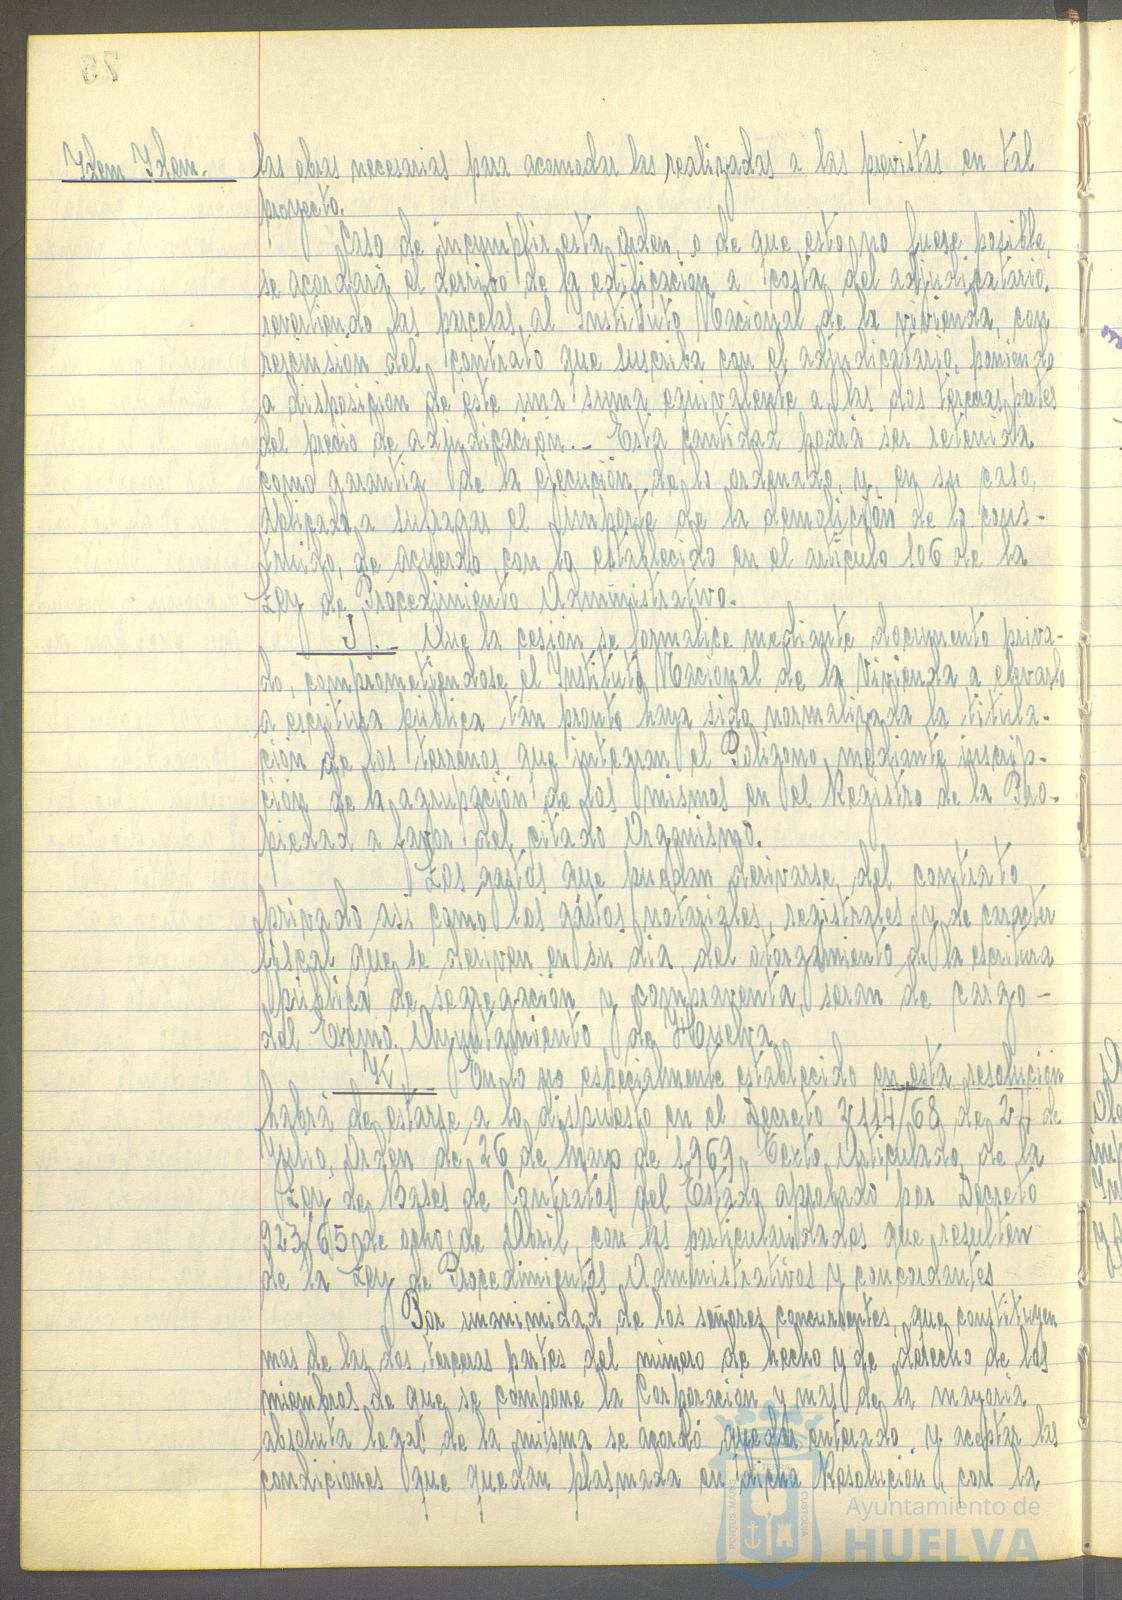 Idem Idem.
las obras necesarias para acomodar las realizadas a las previstas en tal
proyecto.
Caso de incumplir esta orden, o de que esto no fuese posible,
se acordará el derribo de la edificación a costa del adjudicatario,
revertiendo las parcelas, al Instituto Nacional de la vivienda, con
rescinsión del contrato que suscriba con el adjudicatario, poniendo
a disposición de éste una suma equivalente a las dos terceras partes
del precio de adjudicación.- Esta cantidad podrá ser retenida
como garantía de la ejecución de lo ordenado, y, en su caso,
aplicada a sufragar el importe de la demolición de lo cons-
truido, de acuerdo, con lo establecido en el artículo 106 de la
Ley de Procedimiento Administrativo.
J).- Que la cesión se formalice mediante documento priva-
do, comprometiendose el Instituto Nacional de la Vivienda a elevarlo
a escritura pública tan pronto haya sido normalizada la titula-
ción de los terrenos que integran el Polígono, mediante inscrip-
ción de la agrupación de los mismos en el Registro de la Pro-
piedad a favor del citado Organismo.
Los gastos que puedan derivarse, del contrato
privado así como los gastos notariales, registrales y de caracter
fiscal que se deriven en su día, del otorgamiento de la escritura
pública de segregación y compraventa, seran de cargo -
del Excmo. Ayuntamiento de Huelva.
K) En lo no especialmente establecido en esta resolución
habrá de estarse a lo dispuesto en el Decreto 2114/68 de 24 de
Julio, Orden de 26 de Mayo de 1,969, Texto Articulado, de la
Ley de Bases de Contratos del Estado aprobado por Decreto
923/65 de ocho de Abril, con las particularidades que resulten
de la Ley de Procedimientos Administrativos y concordantes
Por unanimidad de los señores concurrentes, que constituyen
mas de las dos terceras partes del número de hecho y de derecho de los
miembros de que se compone la Corporación y mas de la mayoría
absoluta legal de la misma se acordó quedar enterado y aceptar las
condiciones que quedan plasmada en dicha Resolución, con la
PORTUS MARIS
CUSTODIA
Ayuntamiento de
HUELVA